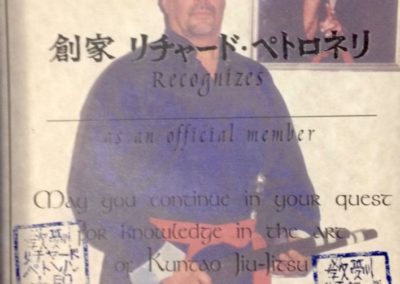 創家 リチャード・ペトロネリ
Recognizes
as an official member
May you continue in your quest
for knowledge in the art
of Kuntao Jiu-Jitsu